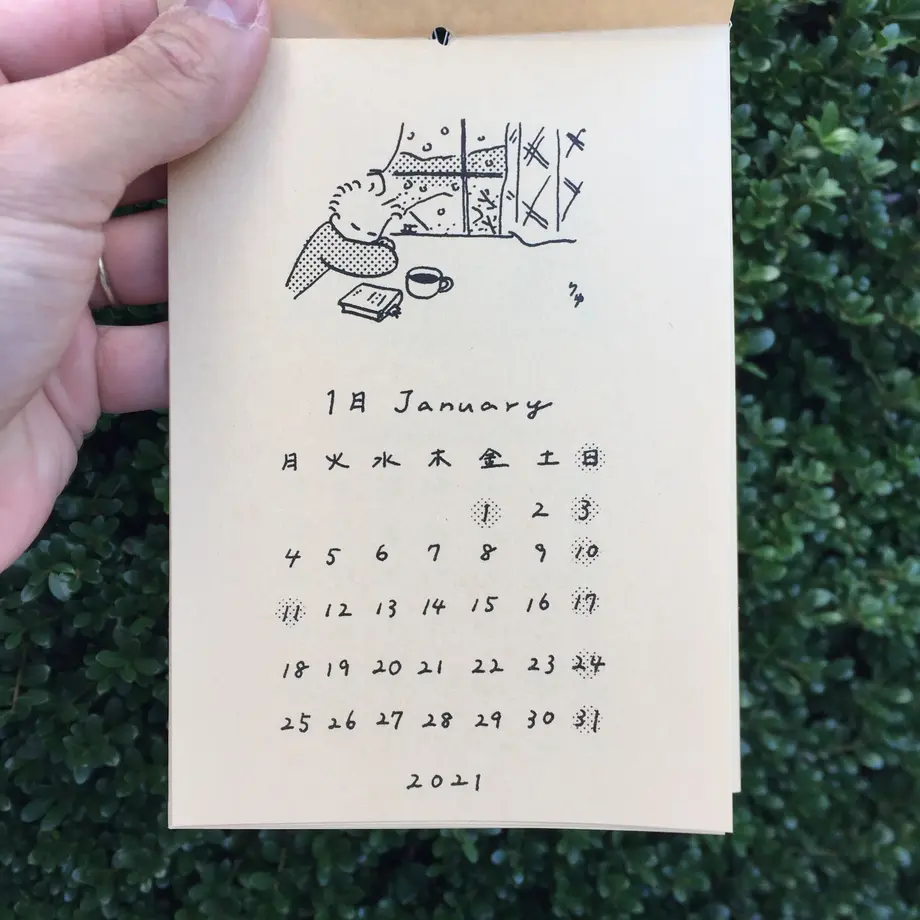 1月 January
月 火 水 木 金 土 日
1 2 3
4 5 6 7 8 9 10
11 12 13 14 15 16 17
18 19 20 21 22 23 24
25 26 27 28 29 30 31
2021